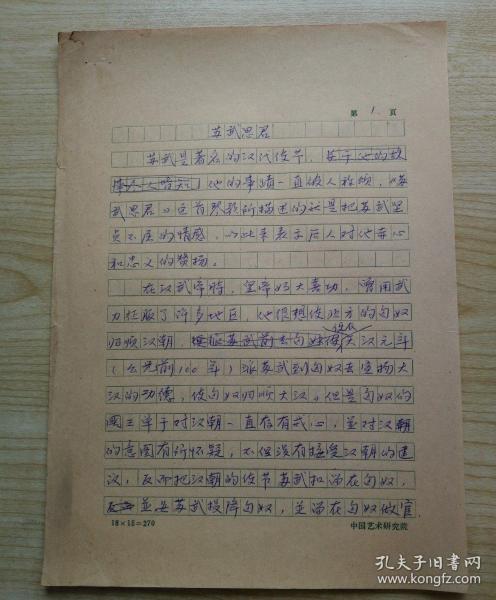 第 1 頁
苏武思君
苏武是著名的汉代使节，关于他的故
事人人皆知，他的事蹟一直被人称颂，《苏
武思君》这首琴歌所描述的就是把苏武坚
贞不屈的情感，以此来表示后人对他忠心
和忠义的赞扬。
在汉武帝时，皇帝好大喜功，常用武
力征服了许多地区，他很想使北方的匈奴
归顺汉朝，派苏武前去匈奴 汉元年
（公元前100年）派苏武到匈奴去宣扬大
汉的功德，使匈奴归顺大汉。但是匈奴的
國王单于对汉朝一直存有戒心，並对汉朝
的意图有所怀疑，不但没有接受汉朝的建
议，反而把汉朝的使节苏武扣留在匈奴，
並要苏武投降匈奴，並留在匈奴做官
18×15=270
中国艺术研究院
孔夫子旧书网
www.kongfz.com